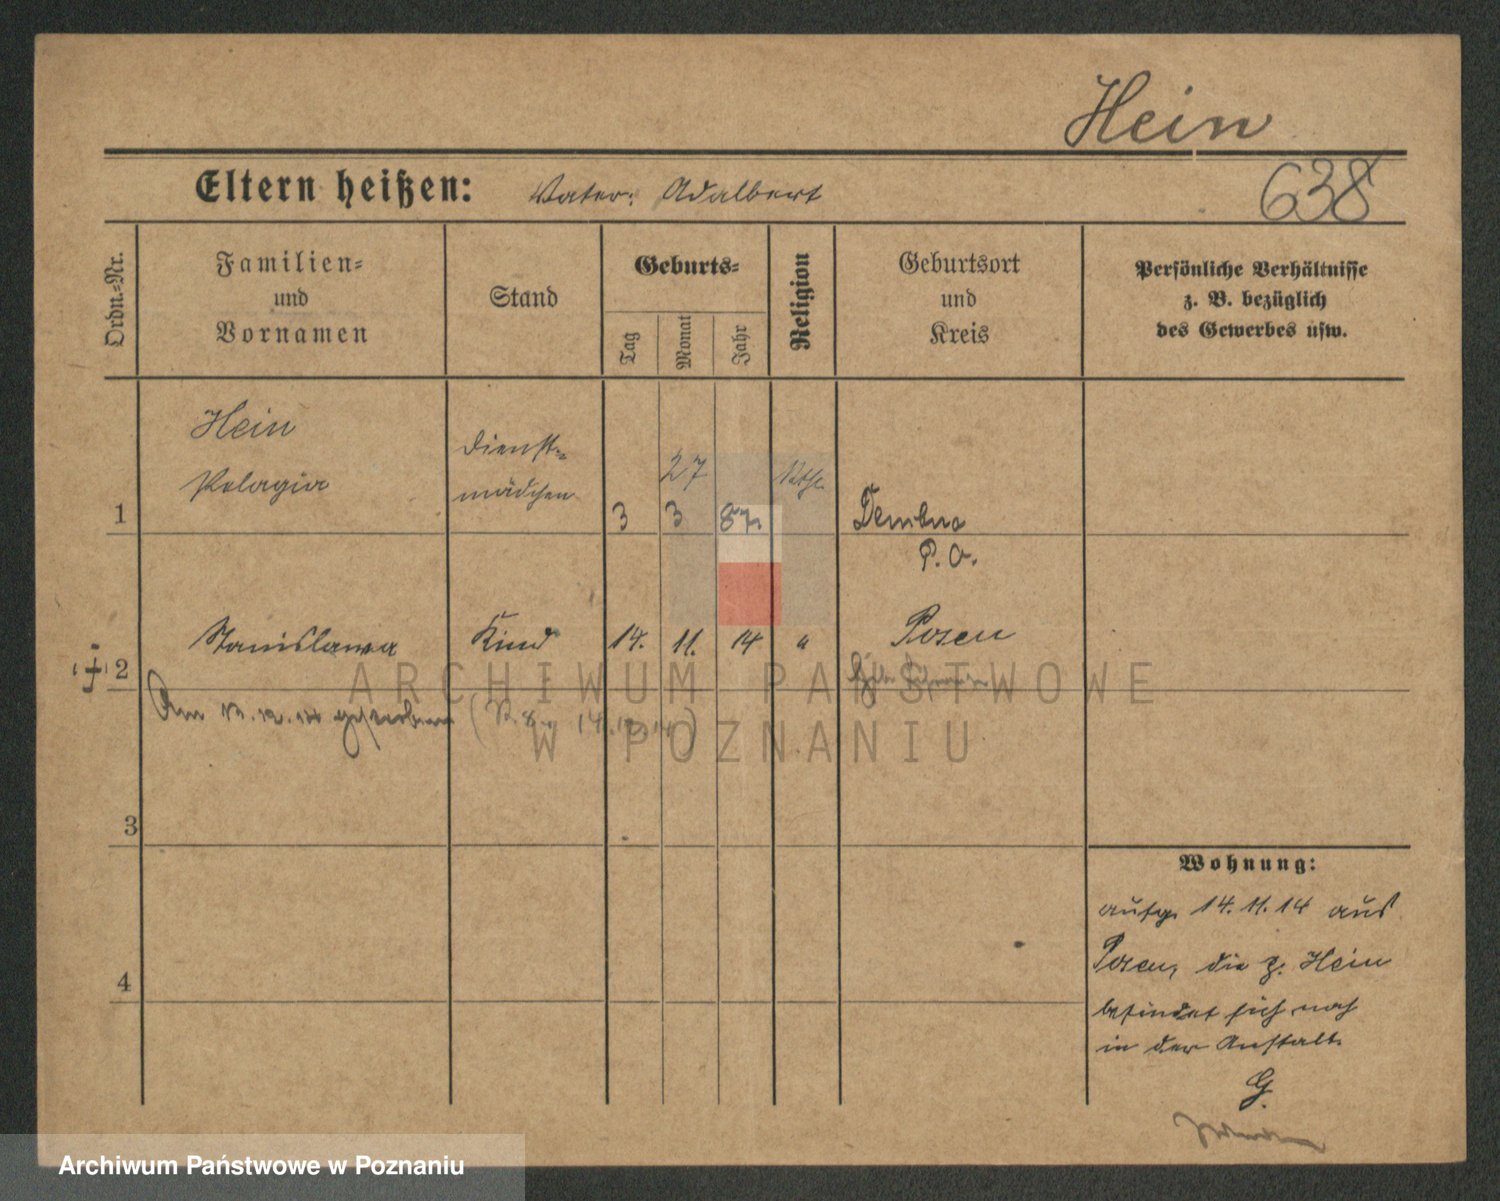 Hein
638
Eltern heißen: Vater: Adalbert
Ordn.-Nr.
Familien-
und
Vornamen
Stand
Geburts-
Tag
Monat
Jahr
Religion
Geburtsort
und
Kreis
Persönliche Verhältnisse
z. B. bezüglich
des Gewerbes usw.
1
Hein
Pelagia
Dienst-
mädchen
27
3 3 87
Kath.
Dembno
P. O.
2
Stanislawa
Kind
14. 11. 14
"
Posen
Am 13.12.14 gestorben
14.12.14)
3
4
Wohnung:
aufg. 14.11.14 aus
Posen, die p. Hein
befindet sich noch
in der Anstalt.
G.
ARCHIWUM PAŃSTWOWE
W POZNANIU
Archiwum Państwowe w Poznaniu